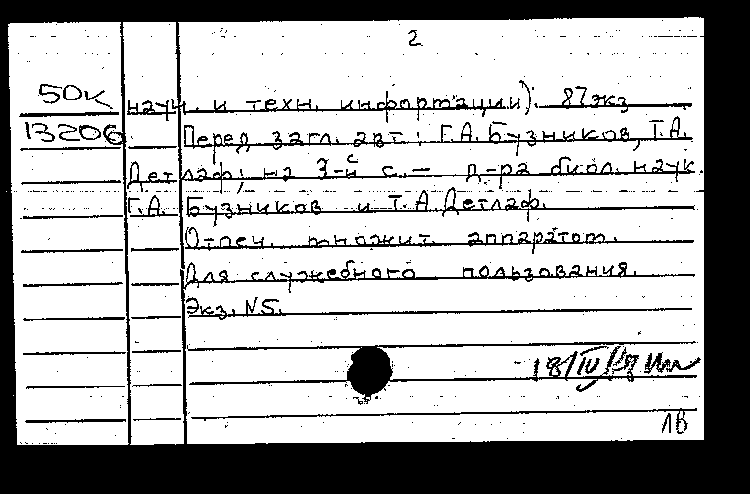 2
50К
науч. и техн. информации). 87 экз
13206 Перед загл. авт.: Г.А. Бузников, Т.А.
Детлаф; на 3-й с. — д-ра биол. наук.
Г.А. Бузников и Т.А. Детлаф.
Отпеч. множит. аппаратом.
Для служебного пользования.
Экз. №5.
18/IV/
ЛВ